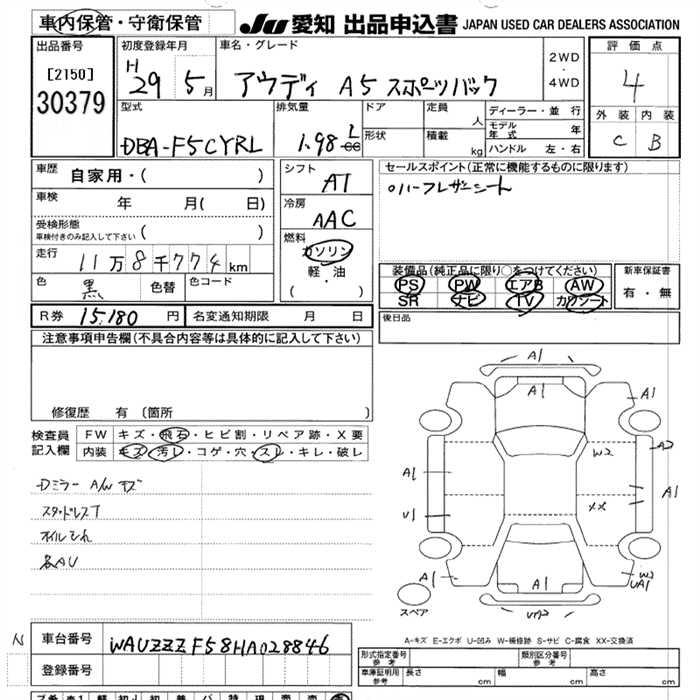 車内保管・守衛保管
JU 愛知 出品申込書 JAPAN USED CAR DEALERS ASSOCIATION
出品番号
[2150]
30379
初度登録年月
H29 5月
車名・グレード
アウディ A5 スポーツバック
2WD
・
4WD
評価点
4
外装 内装
C B
型式
DBA-F5CYRL
排気量
1.98 L
cc
ドア
形状
定員 人
積載 kg
ディーラー・並行
モデル年式 年
ハンドル 左・右
車歴
自家用・( )
車検 年 月( 日)
受検形態
車検付きのみ記入して下さい ( )
走行 11万8千774km
色 黒 色替 色コード
シフト
AT
冷房
AAC
燃料
ガソリン
軽・油
( )
セールスポイント(正常に機能するものに限ります)
ハーフレザーシート
装備品(純正品に限り○をつけてください)
PS PW エアB AW
SR ナビ TV カワシート
新車保証書
有・無
R券 15,180 円 名変通知期限 月 日
後日品
注意事項申告欄(不具合内容等は具体的に記入して下さい)
修復歴 有 (箇所 )
検査員記入欄
FW キズ・飛石・ヒビ割・リペア跡・X要
内装 キズ・汚レ・コゲ・穴・スレ・キレ・破レ
Dミラー A/W キズ
スタッドレスT
オイルヒん
各AU
A1
A1
A1
W2
A2
A1
A1
U1
XX
A1
A1
W2
UA1
スペア
A-キズ E-エクボ U-凹み W-補修跡 S-サビ C-腐食 XX-交換済
N
車台番号 WAUZZZF58HA028846
登録番号
形式指定番号
参考
類別区分番号
参考
車庫証明用
参考
長さ cm 幅 cm 高さ cm